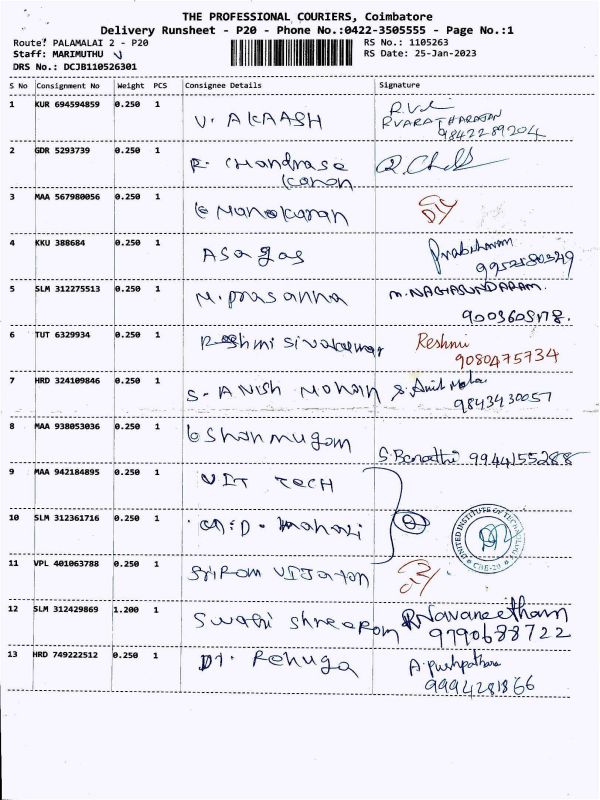 THE PROFESSIONAL COURIERS, Coimbatore
Delivery Runsheet - P20 - Phone No.:0422-3505555 - Page No.:1
Route: PALAMALAI 2 - P20 RS No.: 1105263
Staff: MARIMUTHU V RS Date: 25-Jan-2023
DRS No.: DCJB110526301
S No Consignment No Weight PCS Consignee Details Signature
1 KUR 694594859 0.250 1 V. AKAASH
RVARATHARAJAN
9842289204
2 GDR 5293739 0.250 1 R. Chandrase
kanan
3 MAA 567980056 0.250 1 Manokaran
4 KKU 388684 0.250 1
9952580349
5 SLM 312275513 0.250 1 M. prasanna M.NAGASUNDARAM.
9003603178.
6 TUT 6329934 0.250 1 Reshmi Sivakumar Reshmi
9080475734
7 HRD 324109846 0.250 1 S. ANISH MOHAN S. Anish Mohan
9843430057
8 MAA 938053036 0.250 1 Shanmugam
S. Barathi 9944155288
9 MAA 942184895 0.250 1 VIT TECH
10 SLM 312361716 0.250 1
UNITED INSTITUTE OF TECHNOLOGY
CBE-20
11 VPL 401063788 0.250 1 Sriram
12 SLM 312429869 1.200 1 Swathi shreeram R Navaneetham
9790688722
13 HRD 749222512 0.250 1 DT. Renuga
9994281866